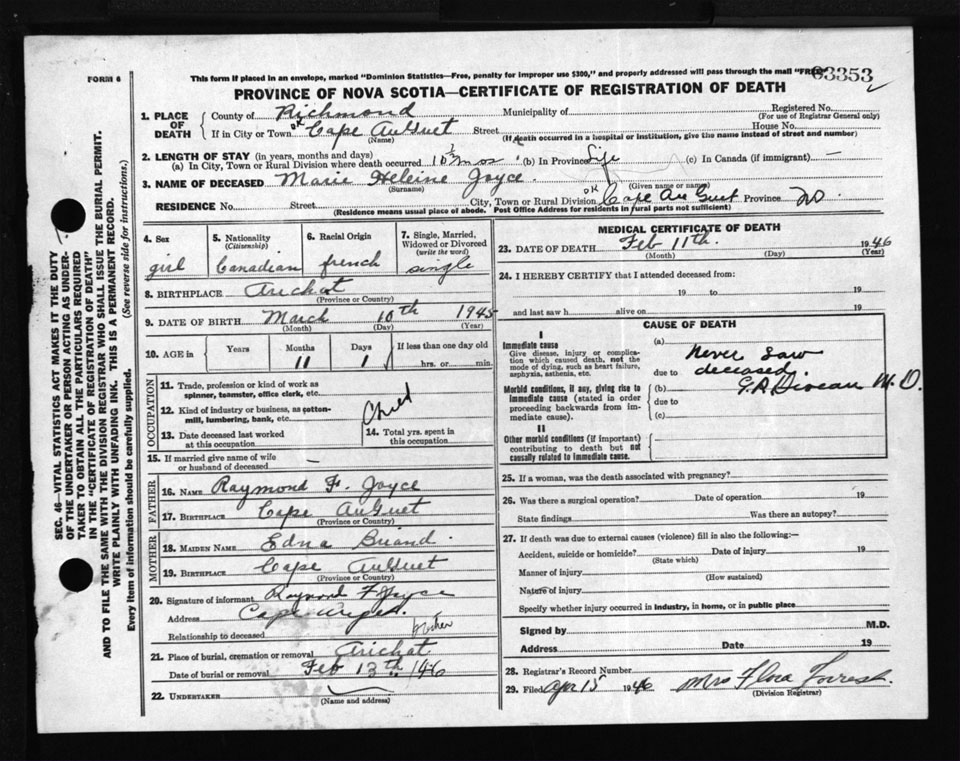 FORM 6
This form if placed in an envelope, marked "Dominion Statistics—Free, penalty for improper use $300," and properly addressed will pass through the mail "FREE"
03353
PROVINCE OF NOVA SCOTIA—CERTIFICATE OF REGISTRATION OF DEATH
SEC. 46—VITAL STATISTICS ACT MAKES IT THE DUTY
OF THE UNDERTAKER OR PERSON ACTING AS UNDER-
TAKER TO OBTAIN ALL THE PARTICULARS REQUIRED
IN THE "CERTIFICATE OF REGISTRATION OF DEATH"
AND TO FILE THE SAME WITH THE DIVISION REGISTRAR WHO SHALL ISSUE THE BURIAL PERMIT.
WRITE PLAINLY WITH UNFADING INK. THIS IS A PERMANENT RECORD.
Every item of information should be carefully supplied. (See reverse side for instructions.)
1. PLACE OF DEATH
County of Richmond Municipality of Registered No.
(For use of Registrar General only)
If in City or Town Cape AuGuet Street House No.
(Name) (If death occurred in a hospital or institution, give the name instead of street and number)
2. LENGTH OF STAY (in years, months and days)
(a) In City, Town or Rural Division where death occurred 10½ mos (b) In Province Life (c) In Canada (if immigrant) —
3. NAME OF DECEASED Marie Heleine Joyce.
(Surname) (Given name or names)
RESIDENCE No. Street City, Town or Rural Division OK Cape Au Guet Province DO
(Residence means usual place of abode. Post Office Address for residents in rural parts not sufficient)
4. Sex girl
5. Nationality (Citizenship) Canadian
6. Racial Origin french
7. Single, Married, Widowed or Divorced (write the word) single
8. BIRTHPLACE Arichat
(Province or Country)
9. DATE OF BIRTH March 10th 1945
(Month) (Day) (Year)
10. AGE in Years Months 11 Days 1 If less than one day old
hrs. or min.
OCCUPATION
11. Trade, profession or kind of work as spinner, teamster, office clerk, etc.
12. Kind of industry or business, as cotton-mill, lumbering, bank, etc. Child
13. Date deceased last worked at this occupation
14. Total yrs. spent in this occupation
15. If married give name of wife or husband of deceased —
FATHER
16. NAME Raymond F. Joyce
17. BIRTHPLACE Cape AuGuet
(Province or Country)
MOTHER
18. MAIDEN NAME Edna Briand.
19. BIRTHPLACE Cape AuGuet
(Province or Country)
20. Signature of informant Raymond F Joyce
Address Cape
Relationship to deceased
21. Place of burial, cremation or removal Arichat
Date of burial or removal Feb 13th /46
22. UNDERTAKER
(Name and address)
MEDICAL CERTIFICATE OF DEATH
23. DATE OF DEATH Feb 11th. 1946
(Month) (Day) (Year)
24. I HEREBY CERTIFY that I attended deceased from:
19 to 19
and last saw h alive on 19
CAUSE OF DEATH
I
Immediate cause
Give disease, injury or complication which caused death, not the mode of dying, such as heart failure, asphyxia, asthenia, etc.
Morbid conditions, if any, giving rise to immediate cause (stated in order proceeding backwards from immediate cause).
II
Other morbid conditions (if important) contributing to death but not causally related to immediate cause.
(a) Never saw
due to deceased.
(b) M.D.
due to
(c)
25. If a woman, was the death associated with pregnancy?
26. Was there a surgical operation? Date of operation 19
State findings Was there an autopsy?
27. If death was due to external causes (violence) fill in also the following:—
Accident, suicide or homicide? Date of injury 19
(State which)
Manner of injury
(How sustained)
Nature of injury
Specify whether injury occurred in industry, in home, or in public place
Signed by M.D.
Address Date 19
28. Registrar's Record Number
29. Filed Apr 15 1946 Mrs Flora Forrest.
(Division Registrar)